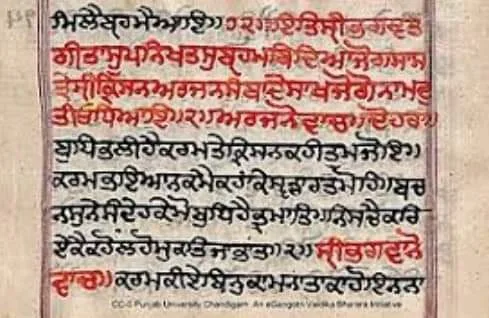 ਮਿਲੈਬ੍ਰਹਮੈਆਇ॥੭੨॥ਇਤਿਸ੍ਰੀਭਗਵਤ
ਗੀਤਾਸੁਪਨਿਖਤਸੁਬ੍ਰਹਮਬਿਦਿਆਜੋਗਸਾਸ
ਤ੍ਰੇਸ੍ਰੀਕ੍ਰਿਸਨਅਰਜਨਸੰਬਾਦੇਸਾਖਜੋਗੋਨਾਮਦੁ
ਤੀਓਧਿਆਇ॥੨॥ਅਰਜਨੋਵਾਚ॥ਦੋਹਰਾ॥
ਬੁਧਿਭਲੀਹੈਕਰਮਤੇਕ੍ਰਿਸਨਕਹੀਤੁਮਜੋਇ॥
ਕਰਮਭਾਇਆਨਕਮੈਕਹਾਂਕੇਸੁਡਾਰਤਮੋਹਿ॥ਬਚ
ਨਸੁਨੇਸੰਦੇਹਕੇਮੋਬੁਧਿਹੈਭ੍ਰਮਾਤਿ॥ਨਿਸਚੈਕਰਿ
ਏਕੈਕਹੋਲਹੋਮੁਕਤਿਜਾਭਾਂਤ॥੨॥ਸ੍ਰੀਭਗਵਾਨੋ
ਵਾਚ॥ਕਰਮਕੀਏਬਿਨੁਕਾਮਨਾਤਾਕਾਹੋਇਨਨਾ
CC-0 Punjab University Chandigarh. An eGangotri-Vaidika Bharata Initiative